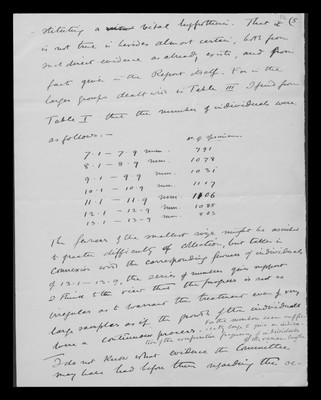 (5
stituting a vital hypothesis. That it
is not true is besides almost certain, both from
such direct evidence as already exists, and from
facts given in the Report itself. For in the
larger groups dealt with in Table III I find from
Table I that the number of individuals were
as follows:—
no of specimens.
7·1 – 7·9 mm. 791
8·1 – 8·9 mm. 1078
9·1 – 9·9 mm. 1031
10·1 – 10·9 mm. 1117
11·1 – 11·9 mm. 1106
12·1 – 12·9 mm. 1088
13·1 – 13·9 mm. 803
The fewness of the smallest size might be ascribed
to greater difficulty of collection, but taken in
connexion with the corresponding fewness of individuals
of 13·1 – 13·9, the series of numbers gives support
I think to the view that the progress is not so
irregular as to warrant the treatment even of very
large samples as if the growth of the individuals
were a continuous process.
for the numbers seem suffic-
iently large to give an indica-
tion of the comparative frequency of individuals
of the various lengths
I do not know what evidence the Committee
may have had before them regarding the oc-